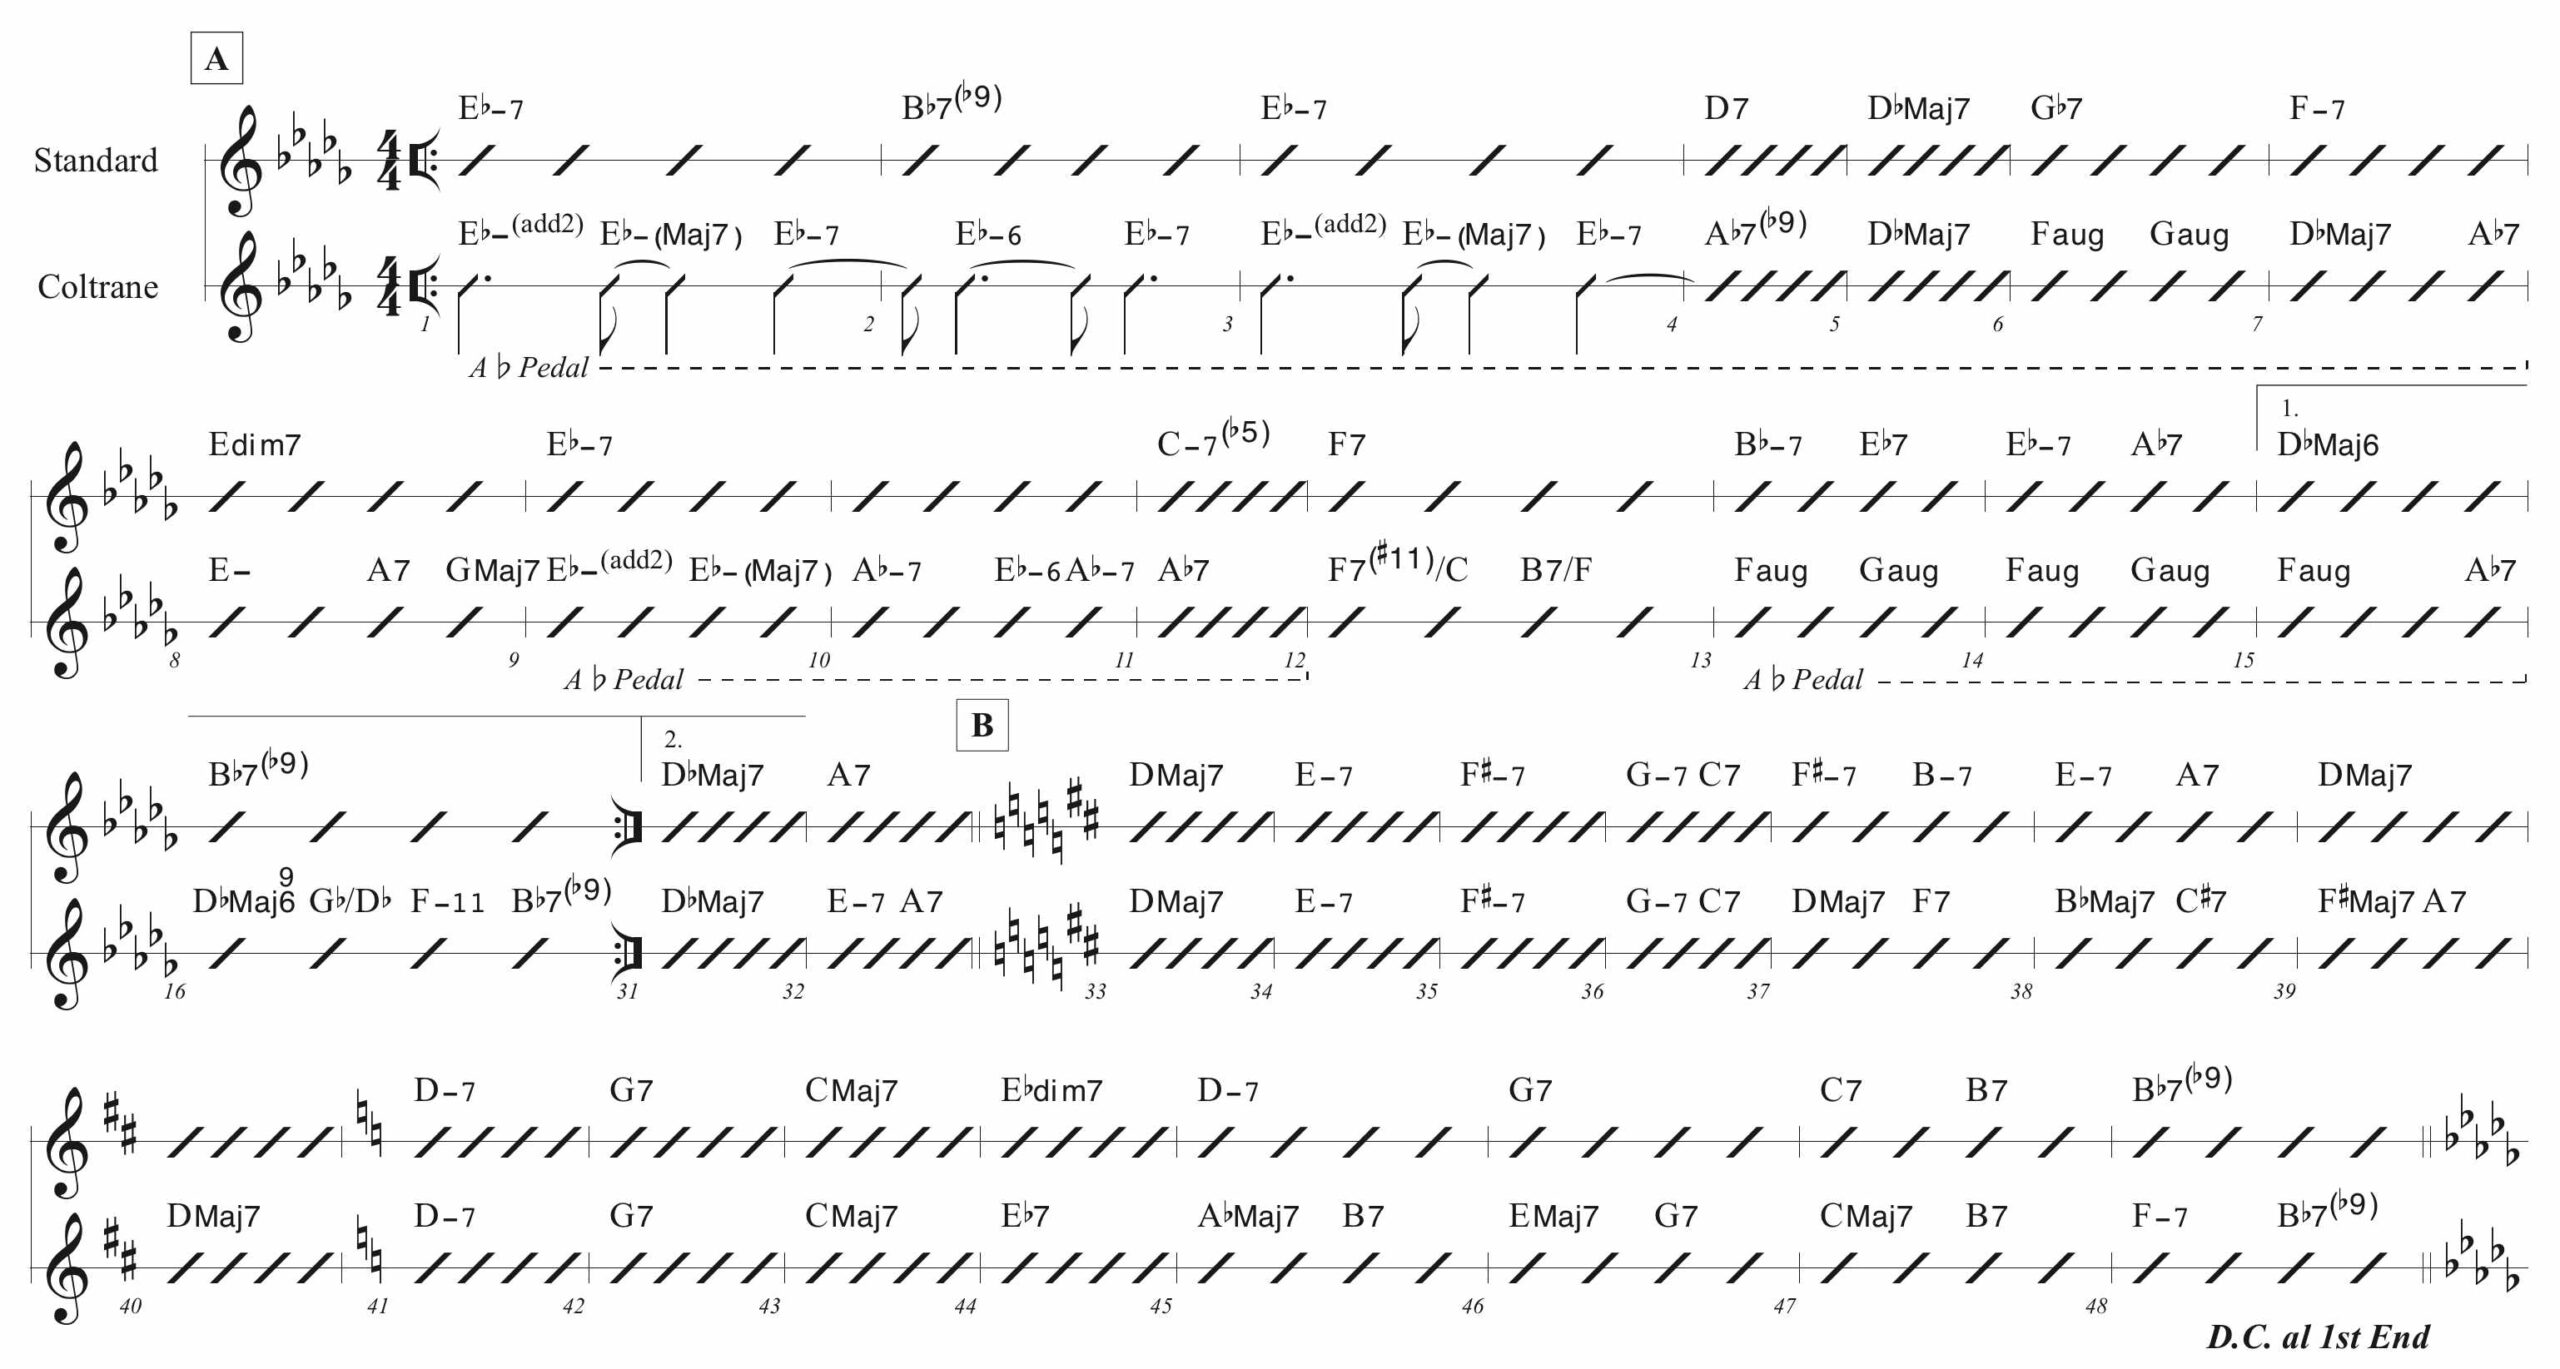 A
E♭–7 B♭7(♭9) E♭–7 D7 D♭Maj7 G♭7 F–7
Standard 4/4
E♭–(add2) E♭–(Maj7) E♭–7 E♭–6 E♭–7 E♭–(add2) E♭–(Maj7) E♭–7 A♭7(♭9) D♭Maj7 Faug Gaug D♭Maj7 A♭7
Coltrane 4/4
1 2 3 4 5 6 7
A♭ Pedal
1.
Edim7 E♭–7 C–7(♭5) F7 B♭–7 E♭7 E♭–7 A♭7 D♭Maj6
E– A7 GMaj7 E♭–(add2) E♭–(Maj7) A♭–7 E♭–6 A♭–7 A♭7 F7(♯11)/C B7/F Faug Gaug Faug Gaug Faug A♭7
8 9 10 11 12 13 14 15
A♭ Pedal A♭ Pedal
B
2.
B♭7(♭9) D♭Maj7 A7 DMaj7 E–7 F♯–7 G–7 C7 F♯–7 B–7 E–7 A7 DMaj7
D♭Maj6 9 G♭/D♭ F–11 B♭7(♭9) D♭Maj7 E–7 A7 DMaj7 E–7 F♯–7 G–7 C7 DMaj7 F7 B♭Maj7 C♯7 F♯Maj7 A7
16 31 32 33 34 35 36 37 38 39
D–7 G7 CMaj7 E♭dim7 D–7 G7 C7 B7 B♭7(♭9)
DMaj7 D–7 G7 CMaj7 E♭7 A♭Maj7 B7 EMaj7 G7 CMaj7 B7 F–7 B♭7(♭9)
40 41 42 43 44 45 46 47 48
D.C. al 1st End